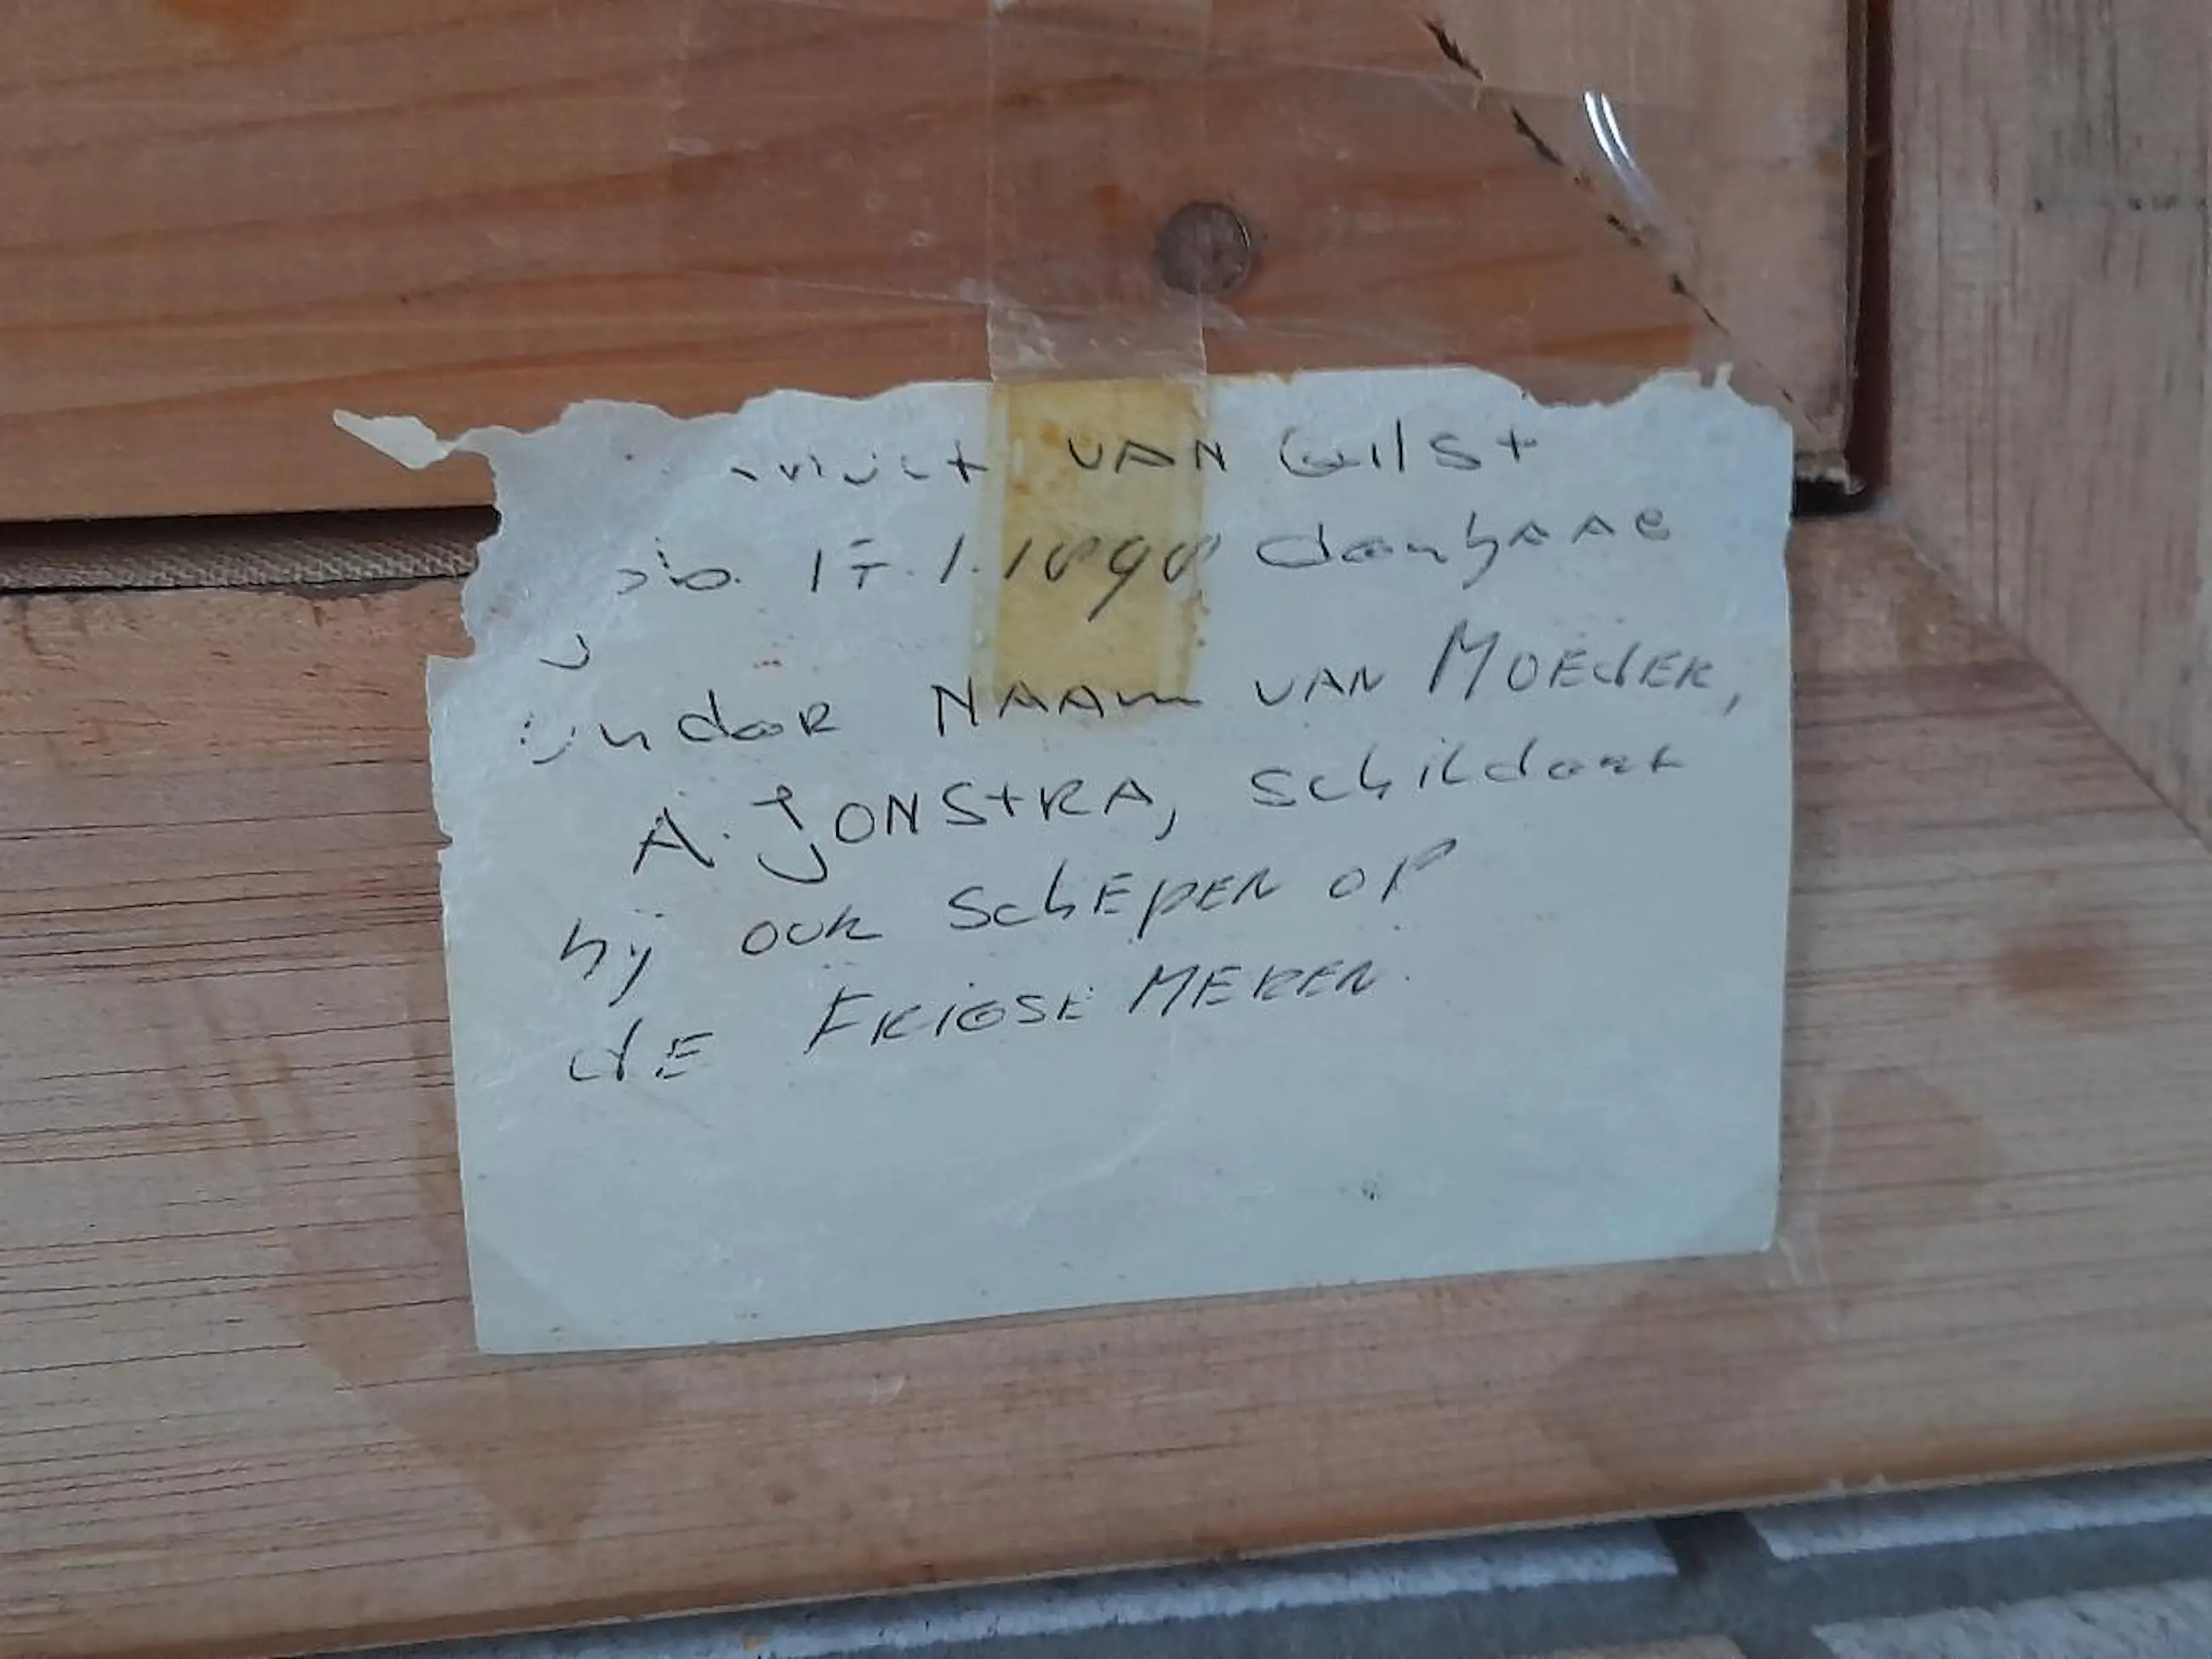 VAN Gilst
17.1.1898 den haag
onder NAAm VAN MOEdER,
A. JONStRA, schildert
hij ook SchEpEN OP
dE FRIESE MEREN.